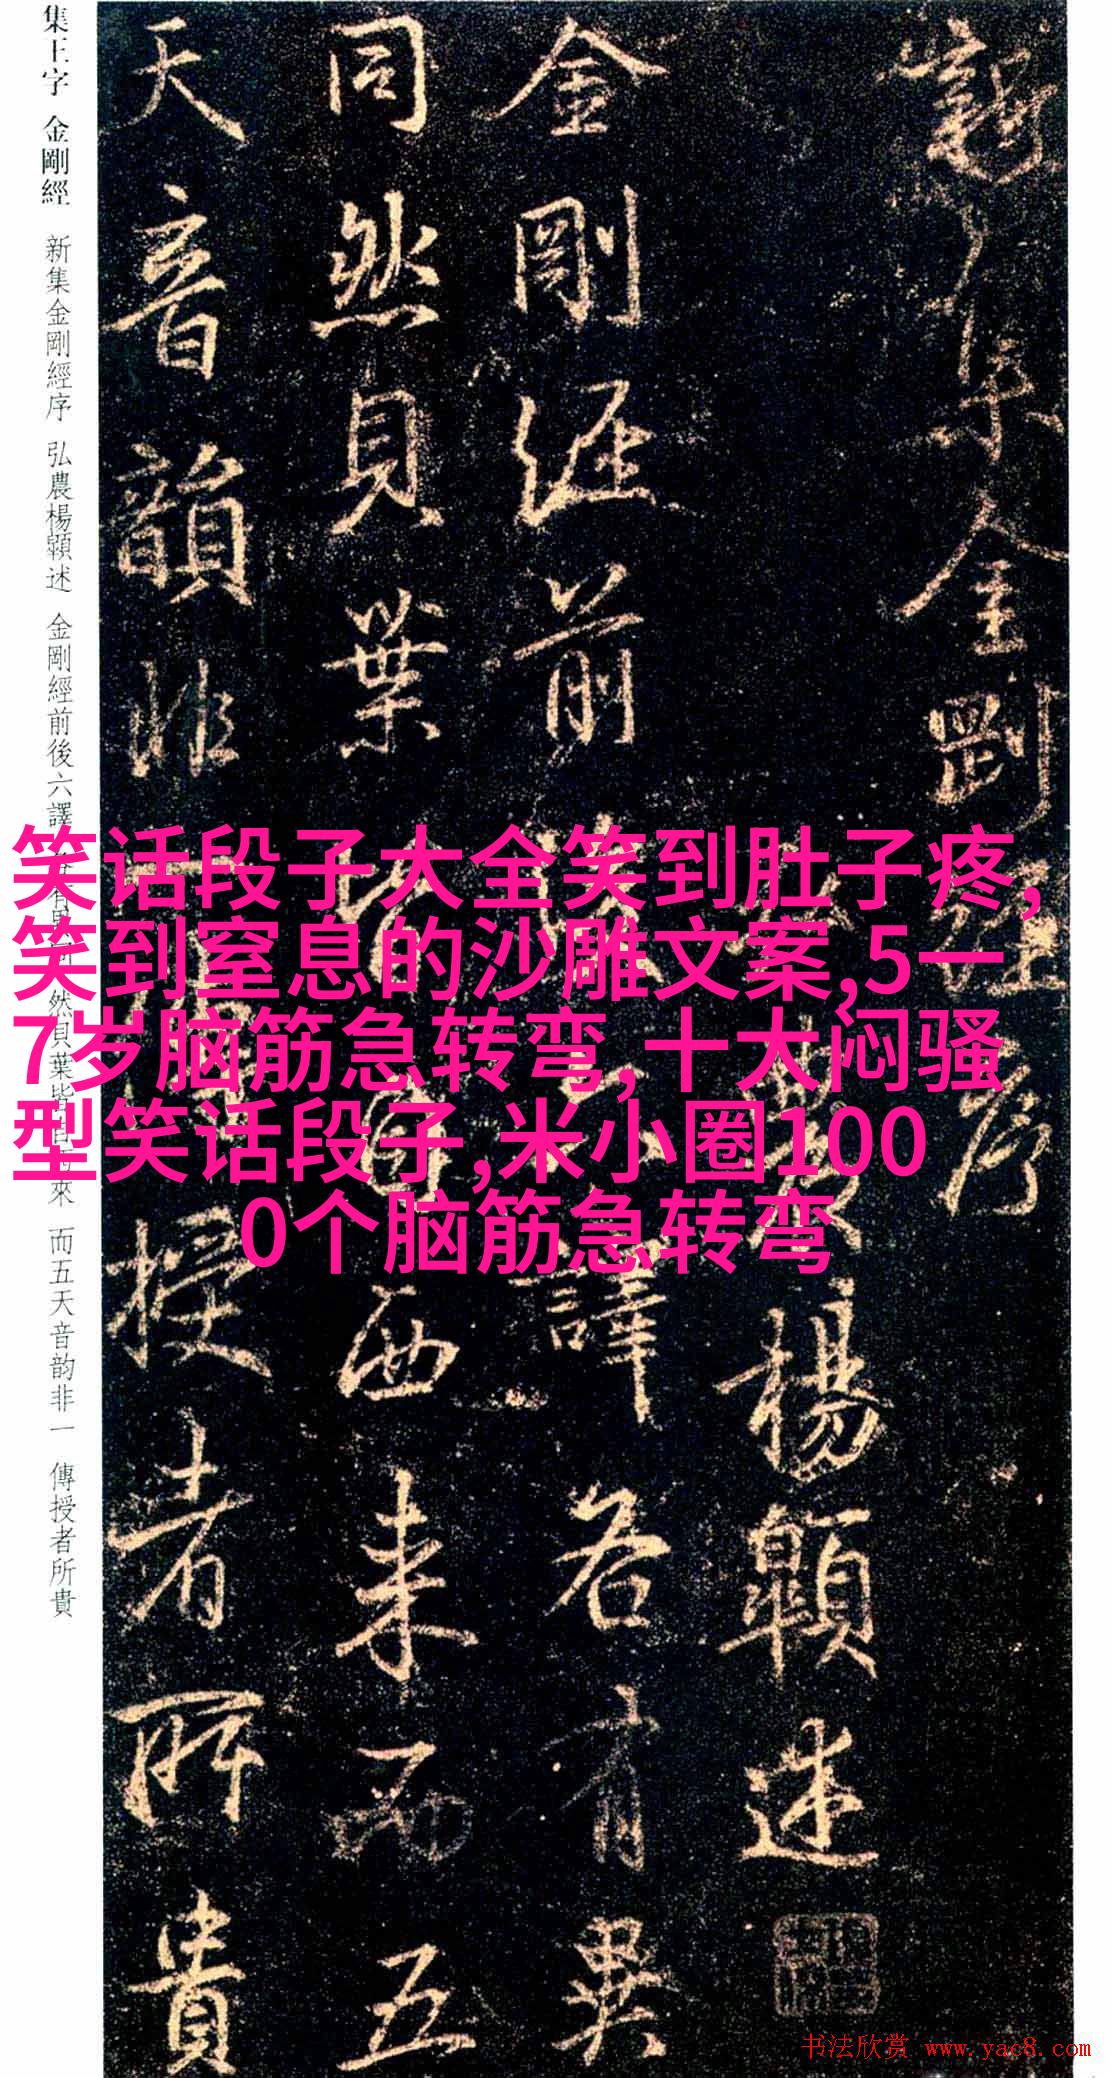 集王字 金剛經 新集金剛經序 弘農楊述 金剛經前後六譯 然貝葉皆自西來 而五天音韵非一 傳授者所貴
新集金剛經序
楊述
金剛經前譯各有異
同然貝葉皆自西来而五
天音韻非授者所貴
笑话段子大全笑到肚子疼,
笑到窒息的沙雕文案,5一
7岁脑筋急转弯,十大闷骚
型笑话段子,米小圈100
0个脑筋急转弯
书法欣赏 www.yac8.com